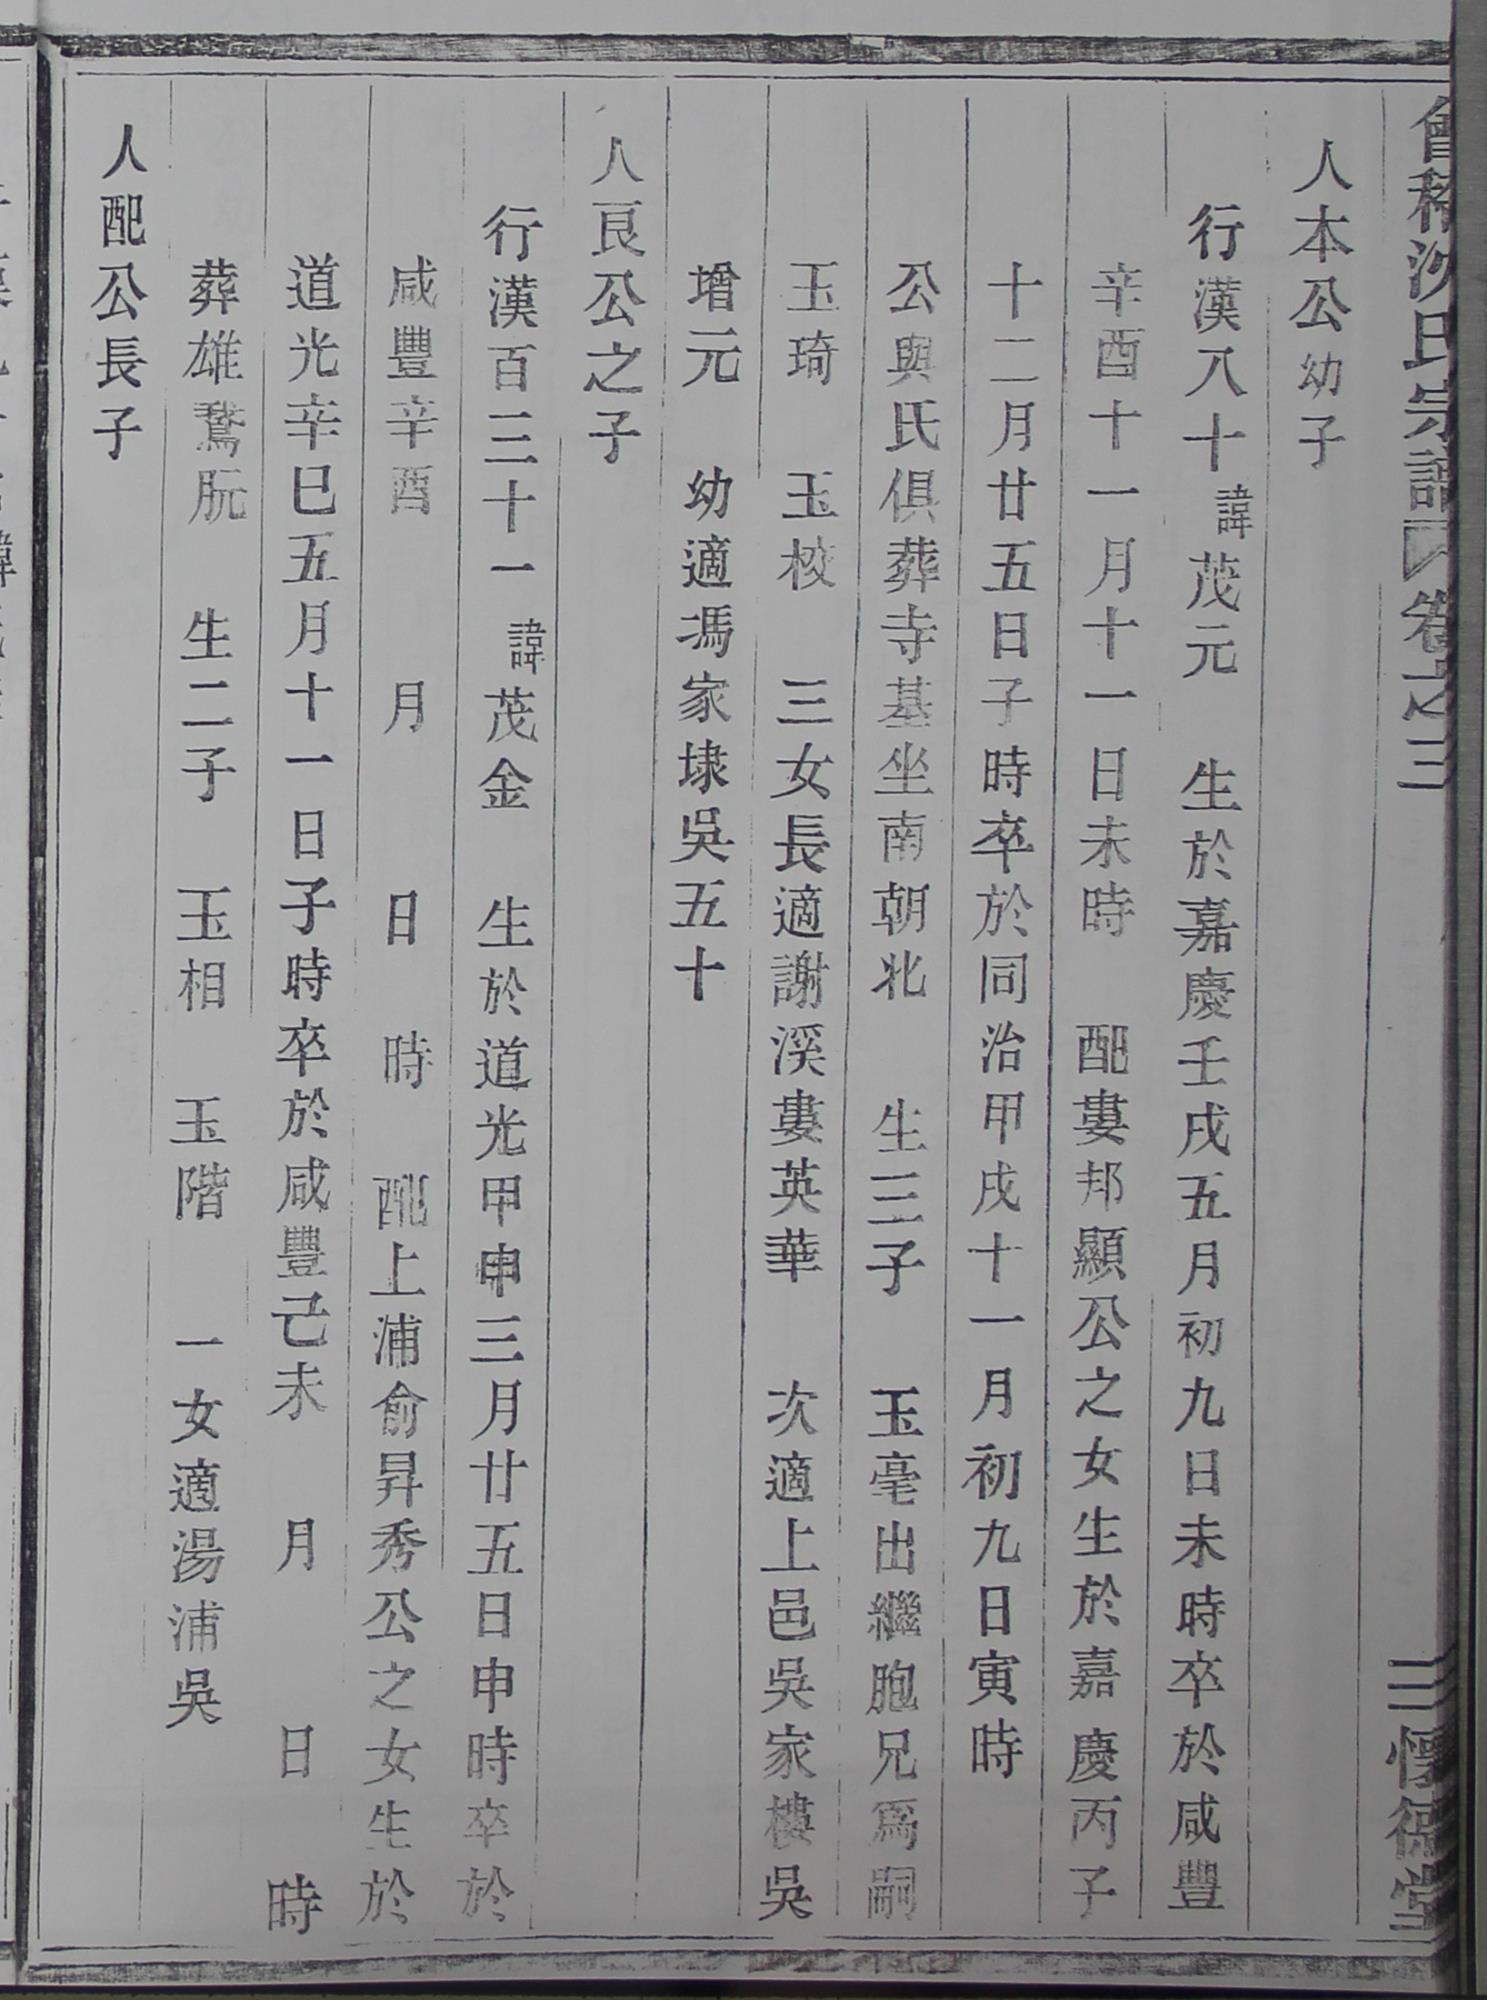 會稽沈氏宗譜 卷之三 三 懷德堂
人本公幼子
行漢八十諱茂元 生於嘉慶壬戌五月初九日未時卒於咸豐
辛酉十一月十一日未時 配婁邦顯公之女生於嘉慶丙子
十二月廿五日子時卒於同治甲戌十一月初九日寅時
公與氏俱葬寺基坐南朝北 生三子 玉毫出繼胞兄爲嗣
玉琦 玉校 三女長適謝溪婁英華 次適上邑吳家樓吳
增元 幼適馮家埭吳五十
人良公之子
行漢百三十一諱茂金 生於道光甲申三月廿五日申時卒於
咸豐辛酉 月 日 時 配上浦俞昇秀公之女生於
道光辛巳五月十一日子時卒於咸豐己未 月 日 時
葬雄鵞朊 生二子 玉相 玉階 一女適湯浦吳
人配公長子